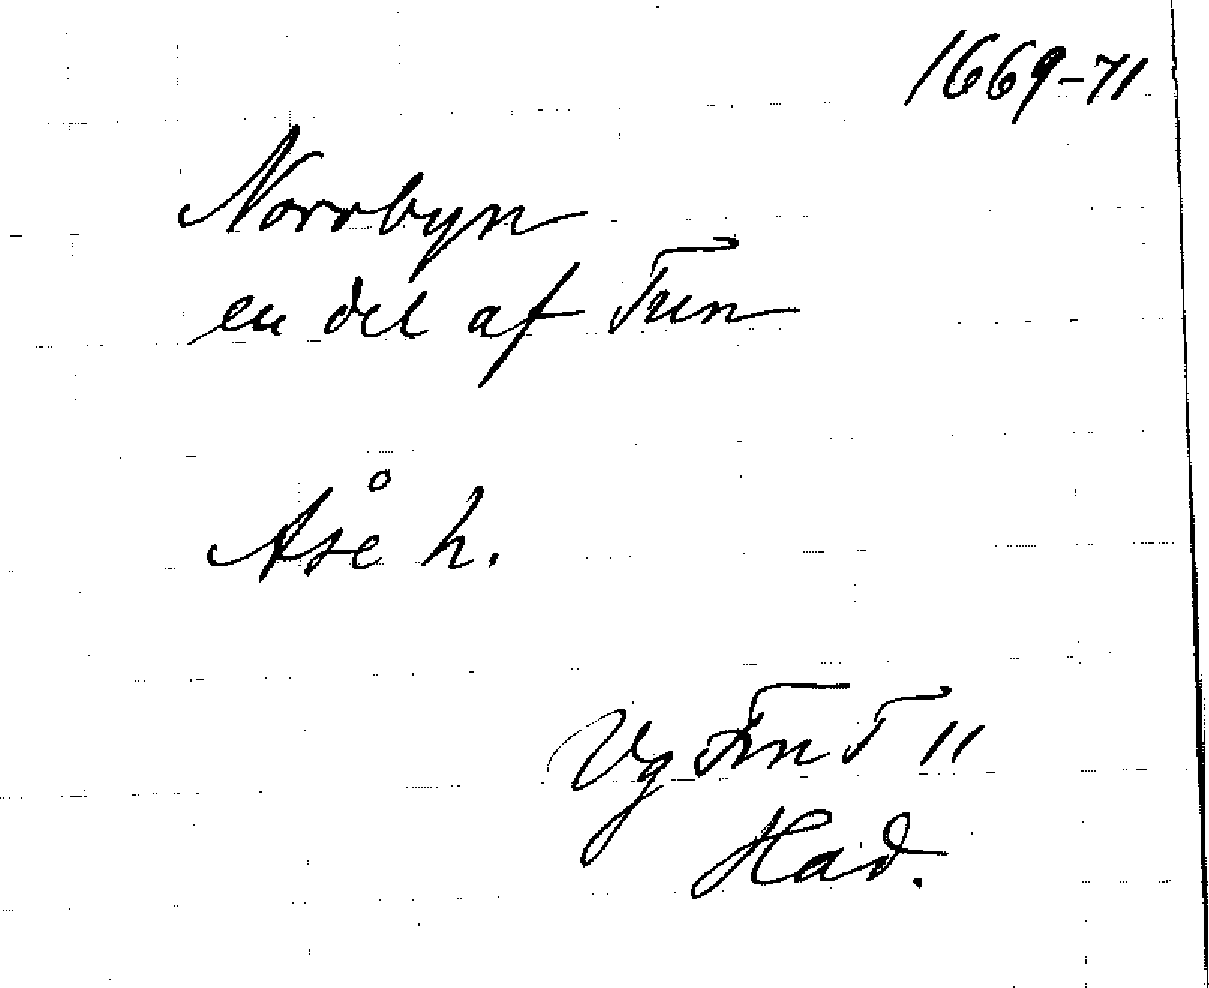 1669-71
Norrbyn
en del af Tun
Åse h.
Vg Fm T 11
Had.